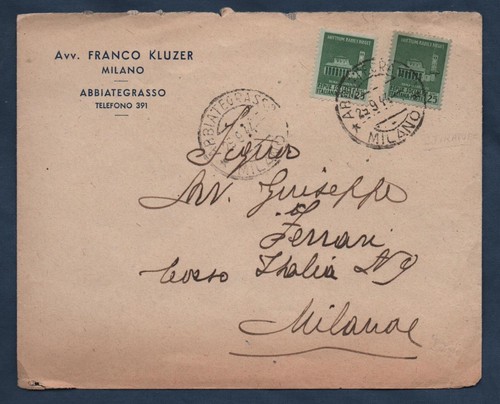 Avv. FRANCO KLUZER
MILANO
ABBIATEGRASSO
TELEFONO 391
25
25
ABBIATEGRASSO
MILANO
MILANO
Avv. Giuseppe
Ferrari
Corso Italia N 9
Milano